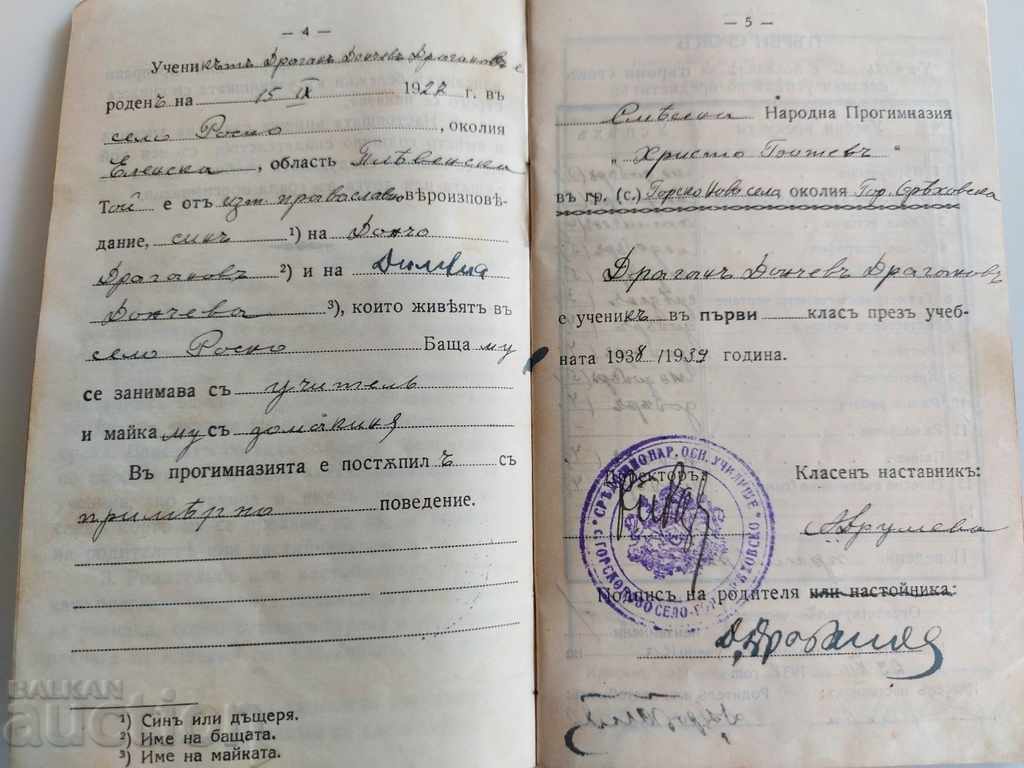 — 4 —
Ученикътъ Драганъ Дончевъ Драгановъ е
роденъ на 15 IX 1927 г. въ
село Роско, околия
Еленска, область Плѣвенска
Той е отъ изт. православно вѣроизповѣ-
дание, синъ ¹) на Дончо
Драгановъ ²) и на
Дончева ³), които живѣятъ въ
село Роско Баща му
се занимава съ учитель
и майка му съ домакиня
Въ прогимназията е постѫпилъ съ
примѣрно поведение.
¹) Синъ или дъщеря.
²) Име на бащата.
³) Име на майката.
BALKAN
auction
— 5 —
Смѣсена Народна Прогимназия
„Христо Ботевъ“
въ гр. (с.) Горско Ново села околия Гор. Орѣховска
Драганъ Дончевъ Драгановъ
е ученикъ въ първи класъ презъ учеб-
ната 1938/1939 година.
Директоръ: Класенъ наставникъ:
Подпись на родителя или настойника: